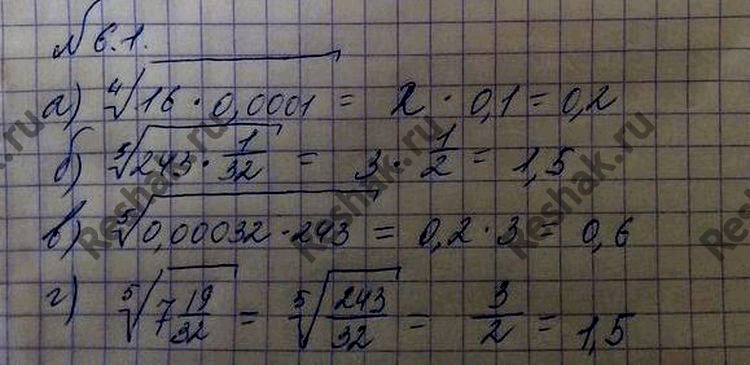 №6.1.
а) ∜(16 · 0,0001) = 2 · 0,1 = 0,2
б) ⁵√(243 · 1/32) = 3 · 1/2 = 1,5
в) ⁵√(0,00032 · 243) = 0,2 · 3 = 0,6
г) ⁵√(7 19/32) = ⁵√(243/32) = 3/2 = 1,5
Reshak.ru
Reshak.ru
Reshak.ru
Reshak.ru